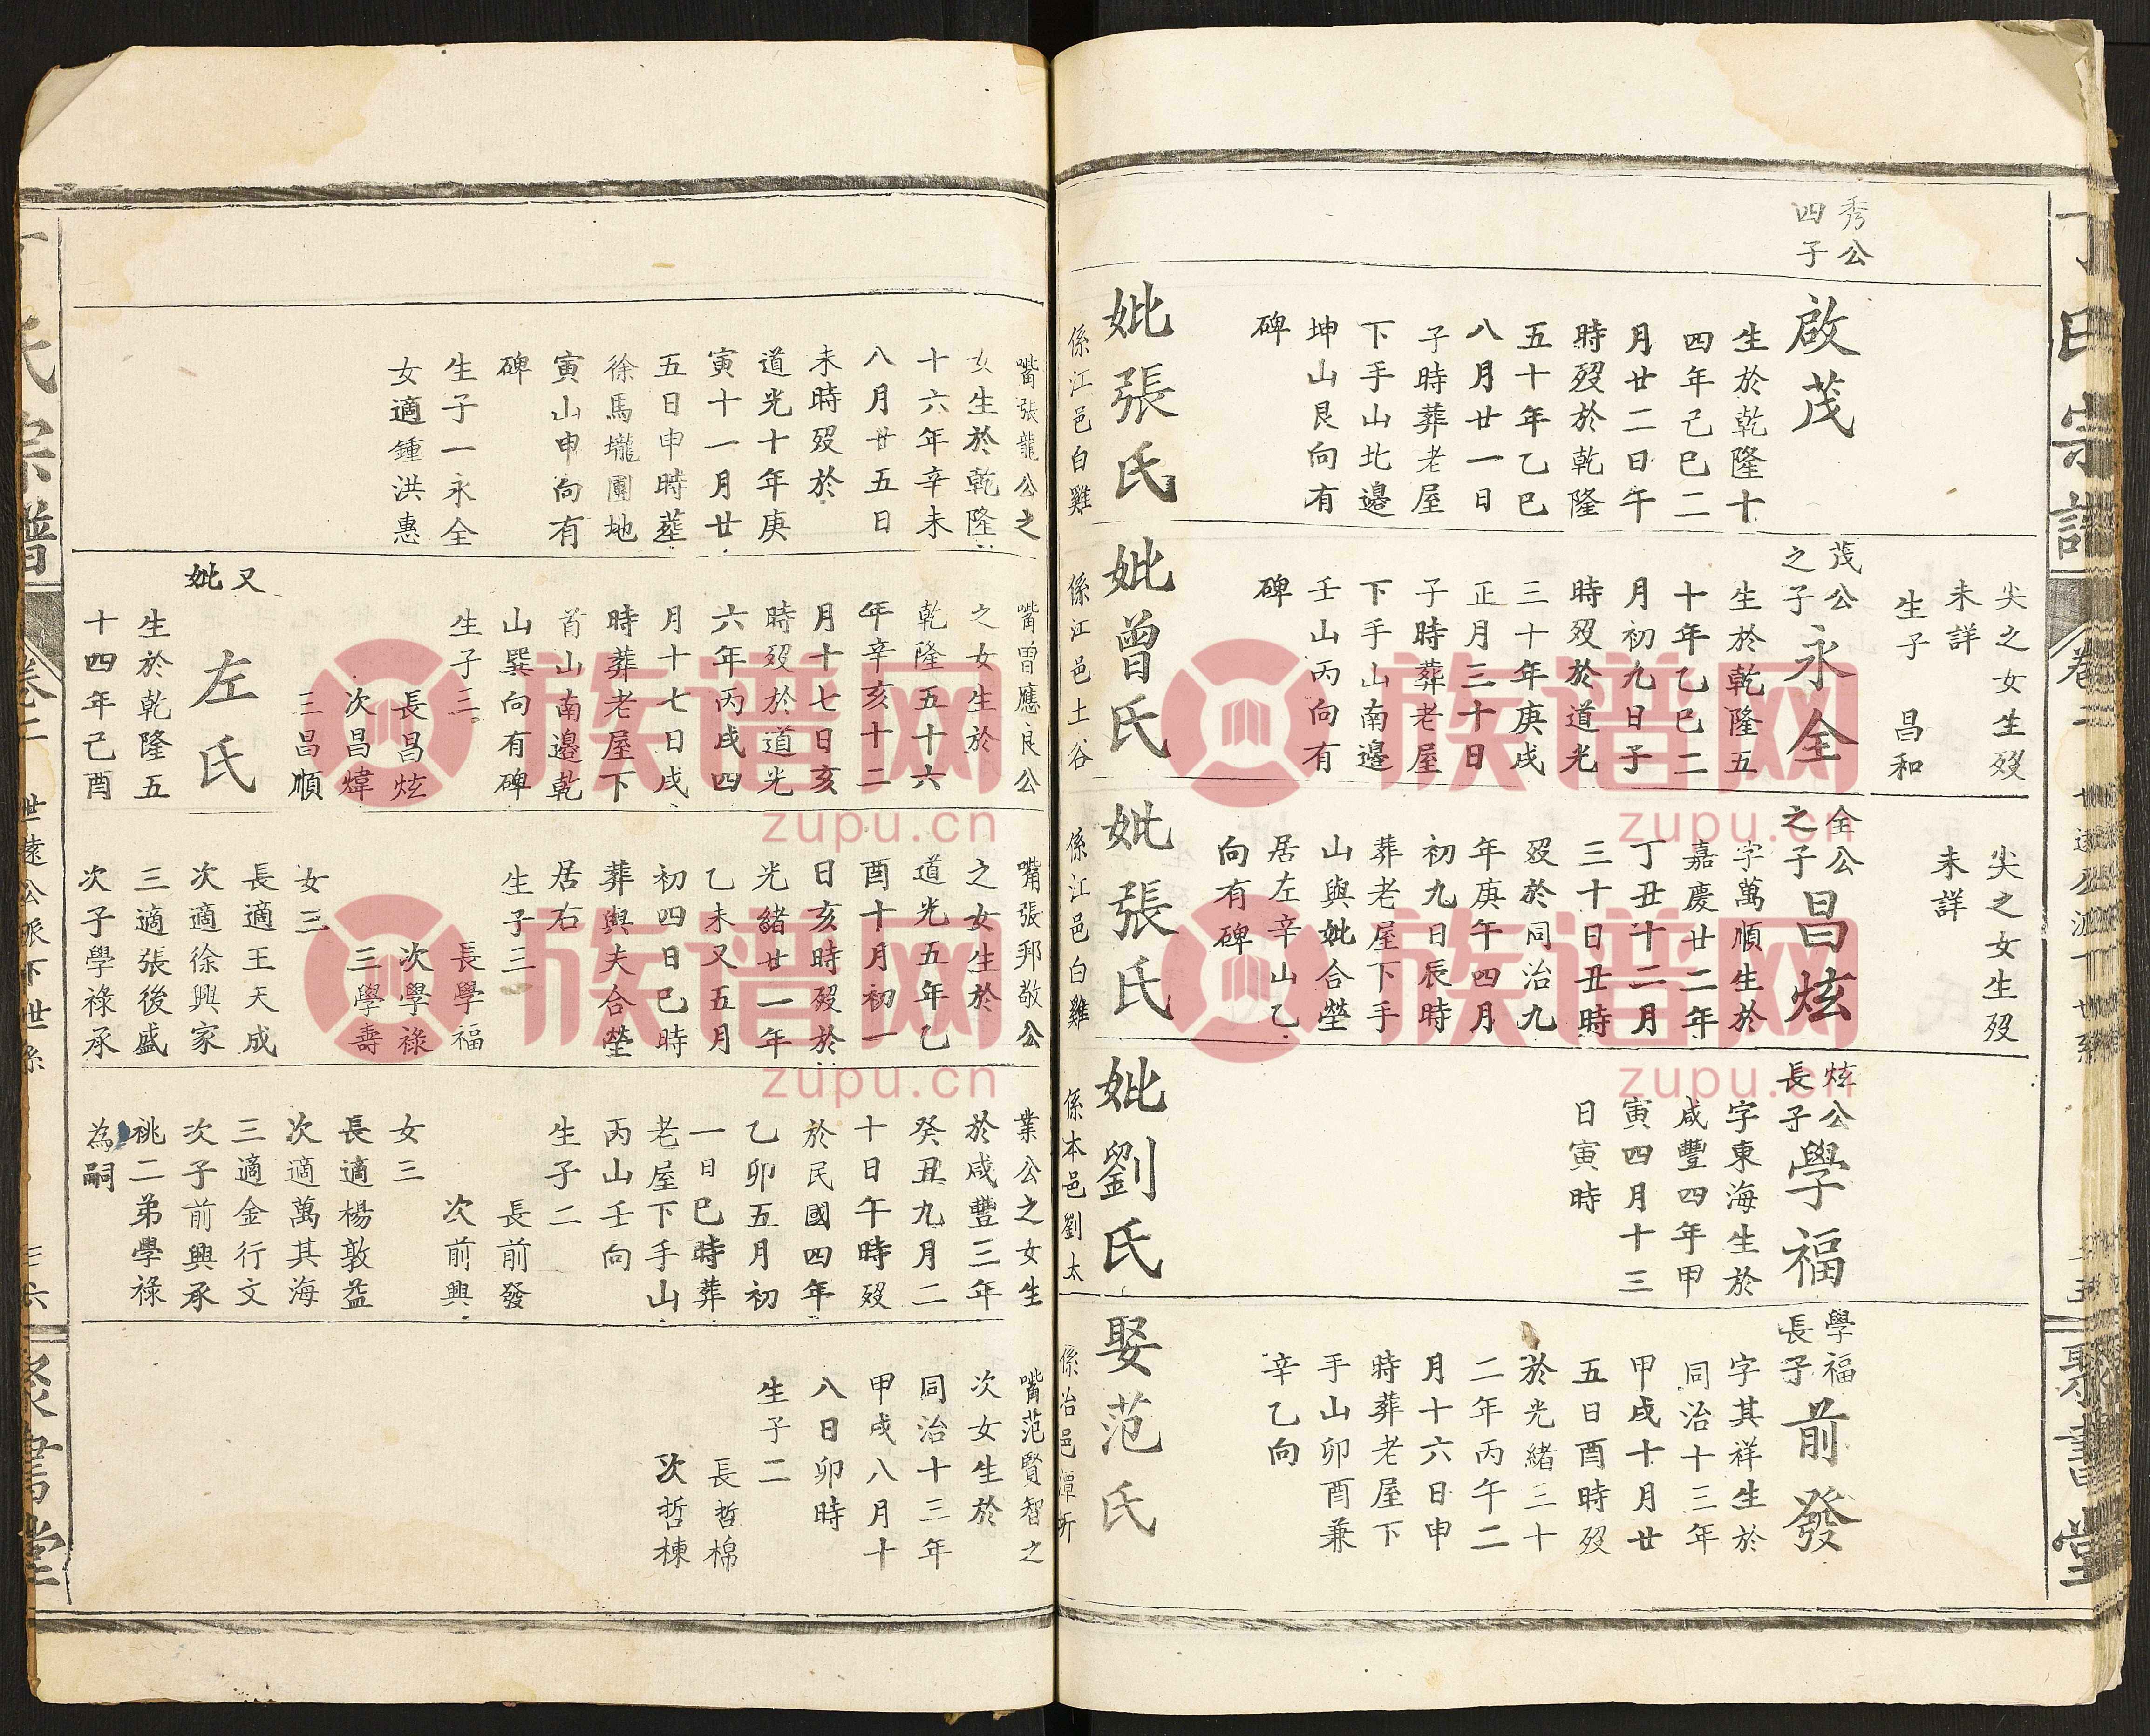 丁氏宗譜
卷二
聚書堂
秀公
四子
啟茂
生於乾隆十
四年己巳二
月廿二日午
時歿於乾隆
五十年乙巳
八月廿一日
子時葬老屋
下手山北邊
坤山艮向有
碑
妣張氏
係江邑白雞
尖之女生歿
未詳
生子 昌和
茂公
之子
永全
生於乾隆五
十年乙巳二
月初九日子
時歿於道光
三十年庚戌
正月三十日
子時葬老屋
下手山南邊
壬山丙向有
碑
妣曾氏
係江邑土谷
尖之女生歿
未詳
全公
之子
昌炫
字萬順生於
嘉慶廿二年
丁丑十二月
三十日丑時
歿於同治九
年庚午四月
初九日辰時
葬老屋下手
山與妣合塋
居左辛山乙
向有碑
妣張氏
係江邑白雞
炫公
長子
學福
字東海生於
咸豐四年甲
寅四月十三
日寅時
妣劉氏
係本邑劉太
學福
長子
前發
字其祥生於
同治十三年
甲戌十月廿
五日酉時歿
於光緒三十
二年丙午二
月十六日申
時葬老屋下
手山卯酉兼
辛乙向
娶范氏
係治邑潭圻
嘴張龍公之
女生於乾隆
十六年辛未
八月廿五日
未時歿於
道光十年庚
寅十一月廿
五日申時葬
徐馬壠團地
寅山申向有
碑
生子一永全
女適鍾洪惠
嘴曾應良公
之女生於
乾隆五十六
年辛亥十二
月十七日亥
時歿於道光
六年丙戌四
月十七日戌
時葬老屋下
首山南邊乾
山巽向有碑
生子三
長昌炫
次昌煒
三昌順
又
妣
左氏
生於乾隆五
十四年己酉
嘴張邦敬公
之女生於
道光五年乙
酉十月初一
日亥時歿於
光緒廿一年
乙未又五月
初四日巳時
葬與夫合塋
居右
生子三
長學福
次學祿
三學壽
女三
長適王天成
次適徐興家
三適張後盛
次子學祿承
業公之女生
於咸豐三年
癸丑九月二
十日午時歿
於民國四年
乙卯五月初
一日巳時葬
老屋下手山
丙山壬向
生子二
長前發
次前興
女三
長適楊敦益
次適萬其海
三適金行文
次子前興承
祧二弟學祿
為嗣
嘴范賢智之
次女生於
同治十三年
甲戌八月十
八日卯時
生子二
長哲棉
次哲棟
氏宗譜
卷二
世遠公派下世系
三六
聚書堂
族谱网
zupu.cn
族谱网
zupu.cn
族谱网
zupu.cn
族谱网
zupu.cn